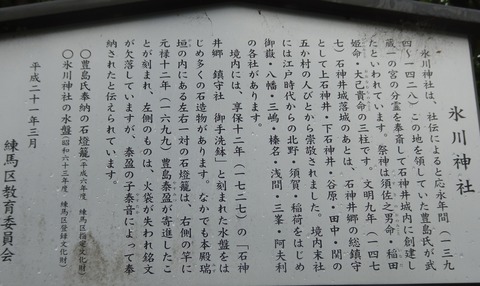 氷川神社
氷川神社は、社伝によると応永年間(一三九
四〜一四二八)この地を領していた豊島氏が武
蔵一の宮の分霊を奉斎して石神井城内に創建し
たといわれています。祭神は須佐之男命・稲田
姫命・大己貴命の三柱です。文明九年(一四七
七)石神井城落城のあとは、石神井郷の総鎮守
として上石神井・下石神井・谷原・田中・関の
五か村の人びとから崇敬されました。境内末社
には江戸時代からの北野、須賀・稲荷をはじめ
御嶽・八幡・三嶋・榛名・浅間・三峯・阿夫利
の各社があります。
境内には、享保十二年(一七二七)の「石神
井郷 鎮守社 御手洗鉢」と刻まれた水盤をは
じめ多くの石造物があります。なかでも本殿瑞
垣の内にある左右一対の石燈籠は、右側の竿に
元禄十二年(一六九九)豊島泰盈が寄進したこ
とが刻まれ、左側のものは、火袋が失われ銘文
が欠落していますが、泰盈の子泰音によって奉
納されたと伝えられています。
〇豊島氏奉納の石燈籠(平成六年度 練馬区指定文化財)
〇氷川神社の水盤(昭和六十三年度 練馬区登録文化財)
平成二十一年三月
練馬区教育委員会